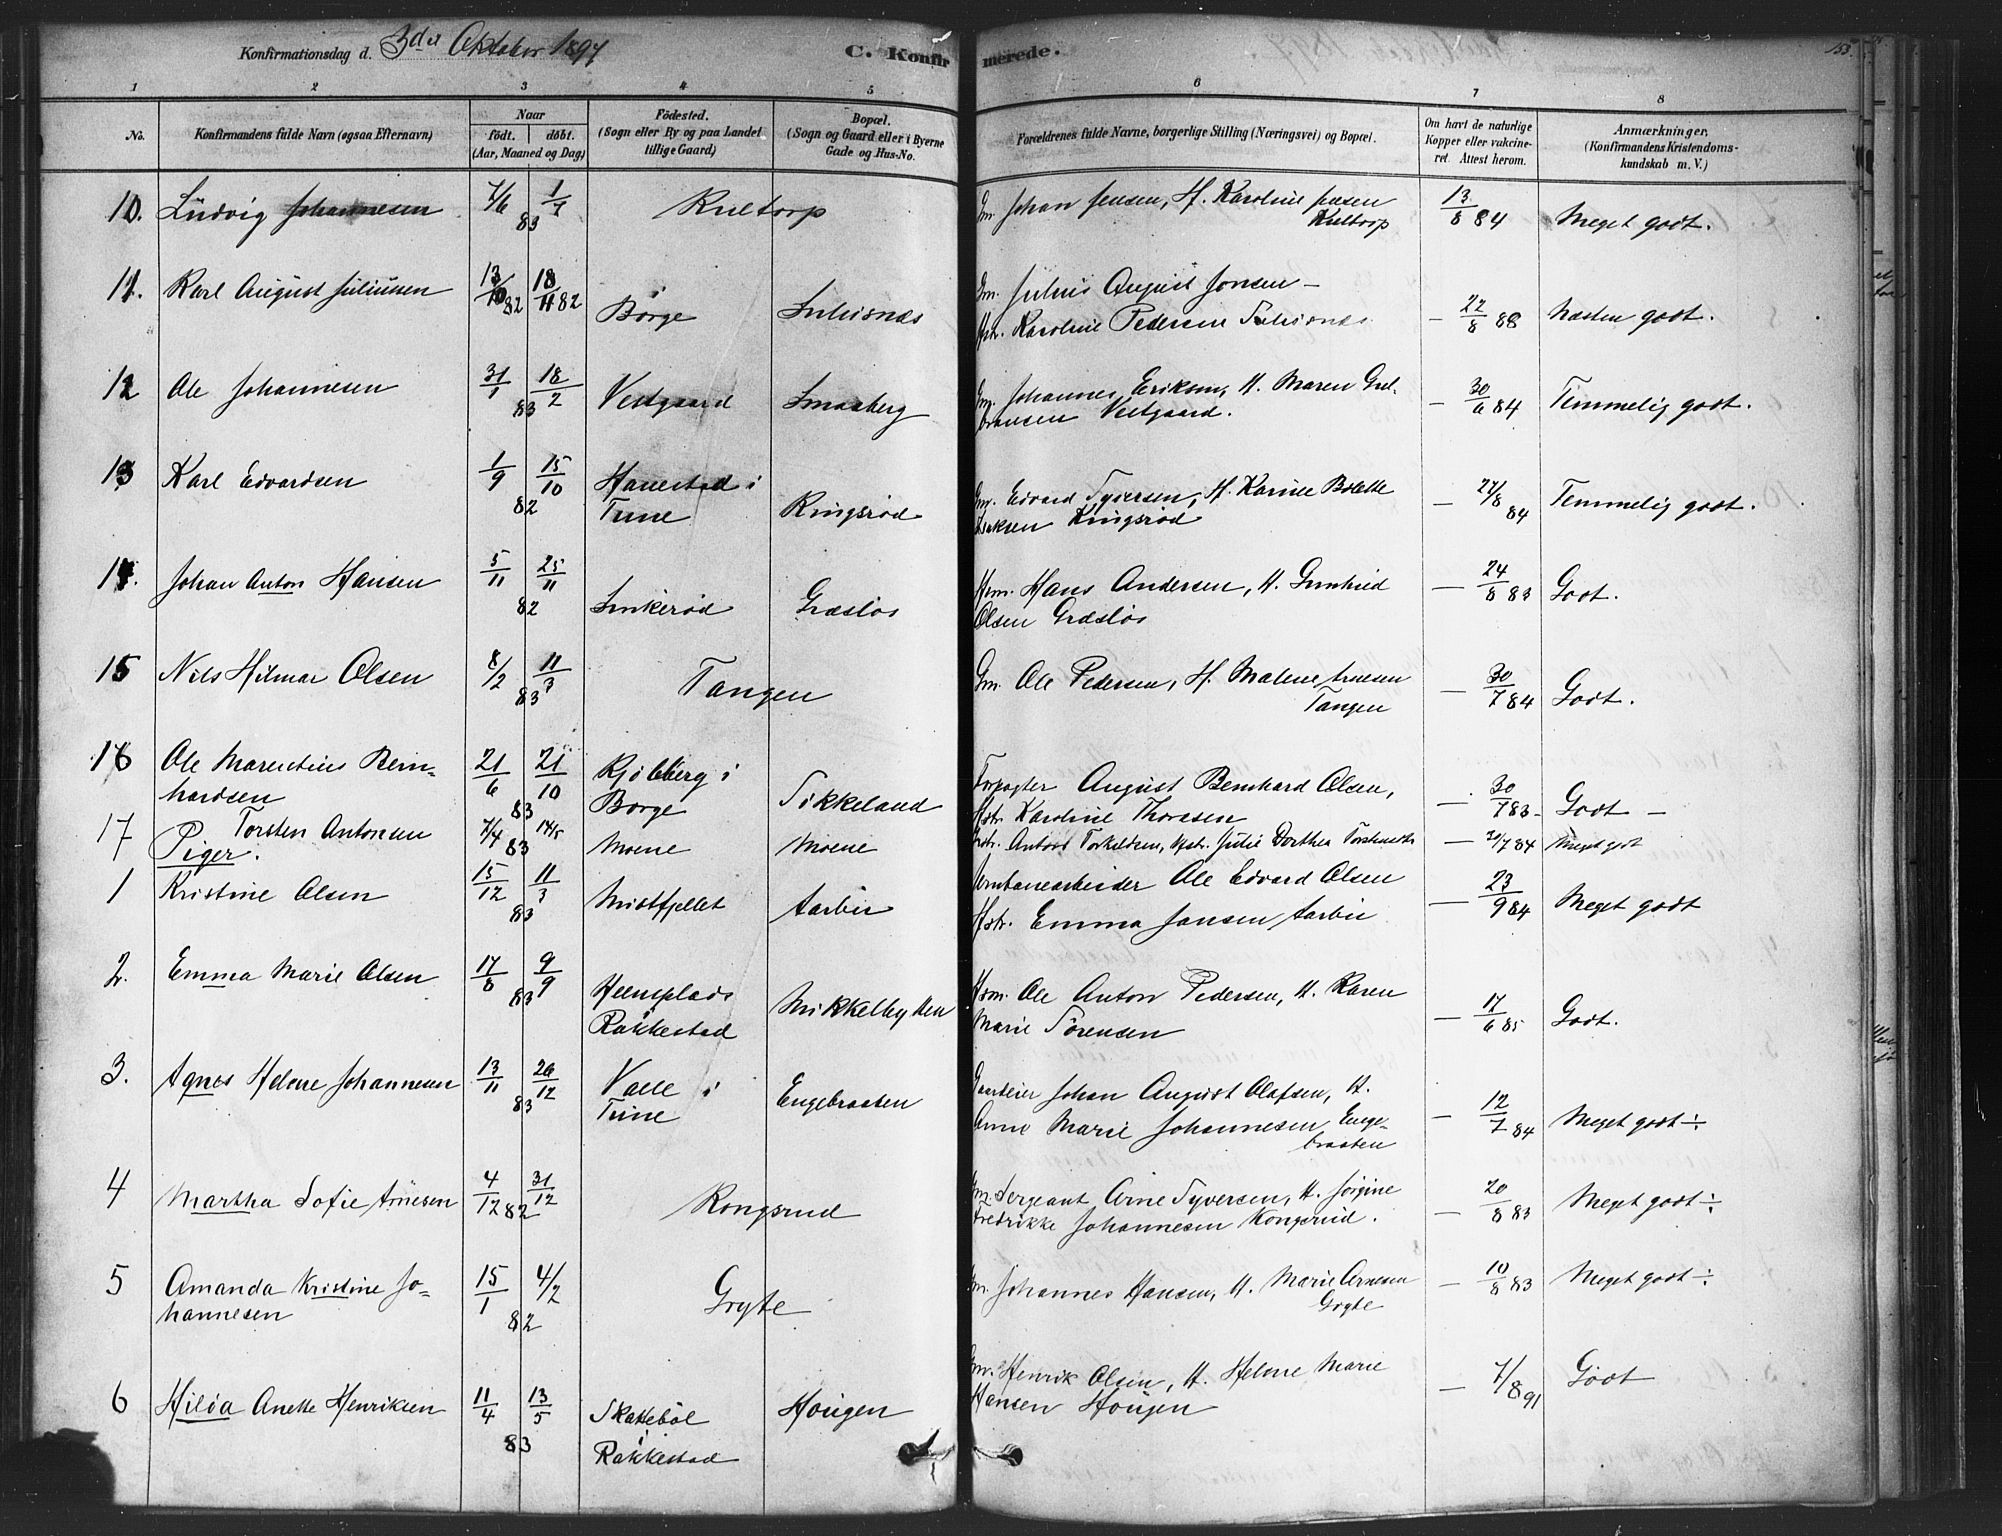 Konfirmationsdag d. 3die Oktober 1897
C. Konfirmerede.
153.
1 2 3 4 5 6 7 8
No.
Konfirmandens fulde Navn (ogsaa Efternavn)
Naar
födt. döbt.
(Aar, Maaned og Dag)
Födested.
(Sogn eller By og paa Landet
tillige Gaard)
Bopæl.
(Sogn og Gaard eller i Byerne
Gade og Hus-No.
Forældrenes fulde Navne, borgerlige Stilling (Næringsvei) og Bopæl.
Om havt de naturlige
Kopper eller vakcine-
ret. Attest herom.
Anmærkninger.
(Konfirmandens Kristendoms-
kundskab m. V.)
10. Ludvig Johannesen 7/6 1/7 83 Kultorp Gm. Johan Jensen, H. Karoline Jensen
Kultorp 13/8 84 Meget godt.
11. Karl August Juliusen 13/10 82 18/11 82 Borge
Gm. Julius August Jonsen –
Hstr. Karoline Pedersen – 22/8 88 Næsten godt.
12 Ole Johannesen 31/1 18/2 83 Vestgaard Smaaberg Gm. Johannes Eriksen, H. Maren Gul-
bransen Vestgaard. – 30/6 84 Temmelig godt.
13 Karl Edvardsen 1/9 15/10 82 Hauestad i
Tune Ringsrød Gm. Edvard Syversen, H. Karine Bolette
Isaksen Ringsrød – 27/8 84 Temmelig godt.
14. Johan Anton Hansen 5/11 25/11 82 Græsløs Hsm. Hans Andersen, H. Gunhild
Olsen Græsløs – 24/8 83 Godt.
15 Nils Hilmar Olsen 8/2 11/3 83 Tangen Gm. Ole Pedersen, H. Malene Arnesen
Tangen – 30/7 84 Godt.
16 Ole Marentius Bern-
hardsen 21/6 21/10 83 Kjölberg i
Borge Sikkeland Forpagter August Bernhard Olsen,
Hstr. Karoline Thoresen – 30/7 83 – Godt –
17 Torsten Antonsen 7/4 14/5 83 Moene Moene Anton Torkildsen, Hstr. Julie Dorthea – 30/7 84 Meget godt
Piger.
1 Kristine Olsen 15/12 11/3 83 Mistfjellet Aarbu Jernbanearbeider Ole Edvard Olsen
Hstr. Emma Jansen Aarbu – 23/9 84 Meget godt
2. Emma Marie Olsen 17/8 9/9 83
Rakkestad Mikkelbytten Hsm. Ole Anton Pedersen, H. Karen
Marie Sörensen – 17/6 85 Godt.
3. Agnes Helene Johannesen 13/11 26/12 83 Valle i
Tune Engebraaten Gaardeier Johan August Olafsen, H.
Anne Marie Johannesen Enge-
braaten – 12/7 84 Meget godt ÷
4 Martha Sofie Arnesen 4/12 82 31/12 Kongsrud Gm. Sergeant Arne Syversen, H. Jörgine
Fredrikke Johannesen Kongsrud. – 20/8 83 Meget godt ÷
5 Amanda Kristine Jo-
hannesen 15/1 4/2 82 Gryte Gm. Johannes Hansen, H. Marie Arnesen
Gryte – 10/8 83 Meget godt ÷
6 Hilda Anette Henriksen 11/4 13/5 83 Skakkeböl
i
Rakkestad Hougen Gm. Henrik Olsen, H. Helene Marie
Hansen Hougen – 7/8 91 Godt